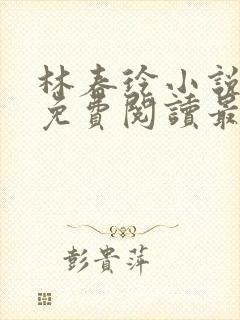 林春徐小說
免費閱讀最
彭貴萍